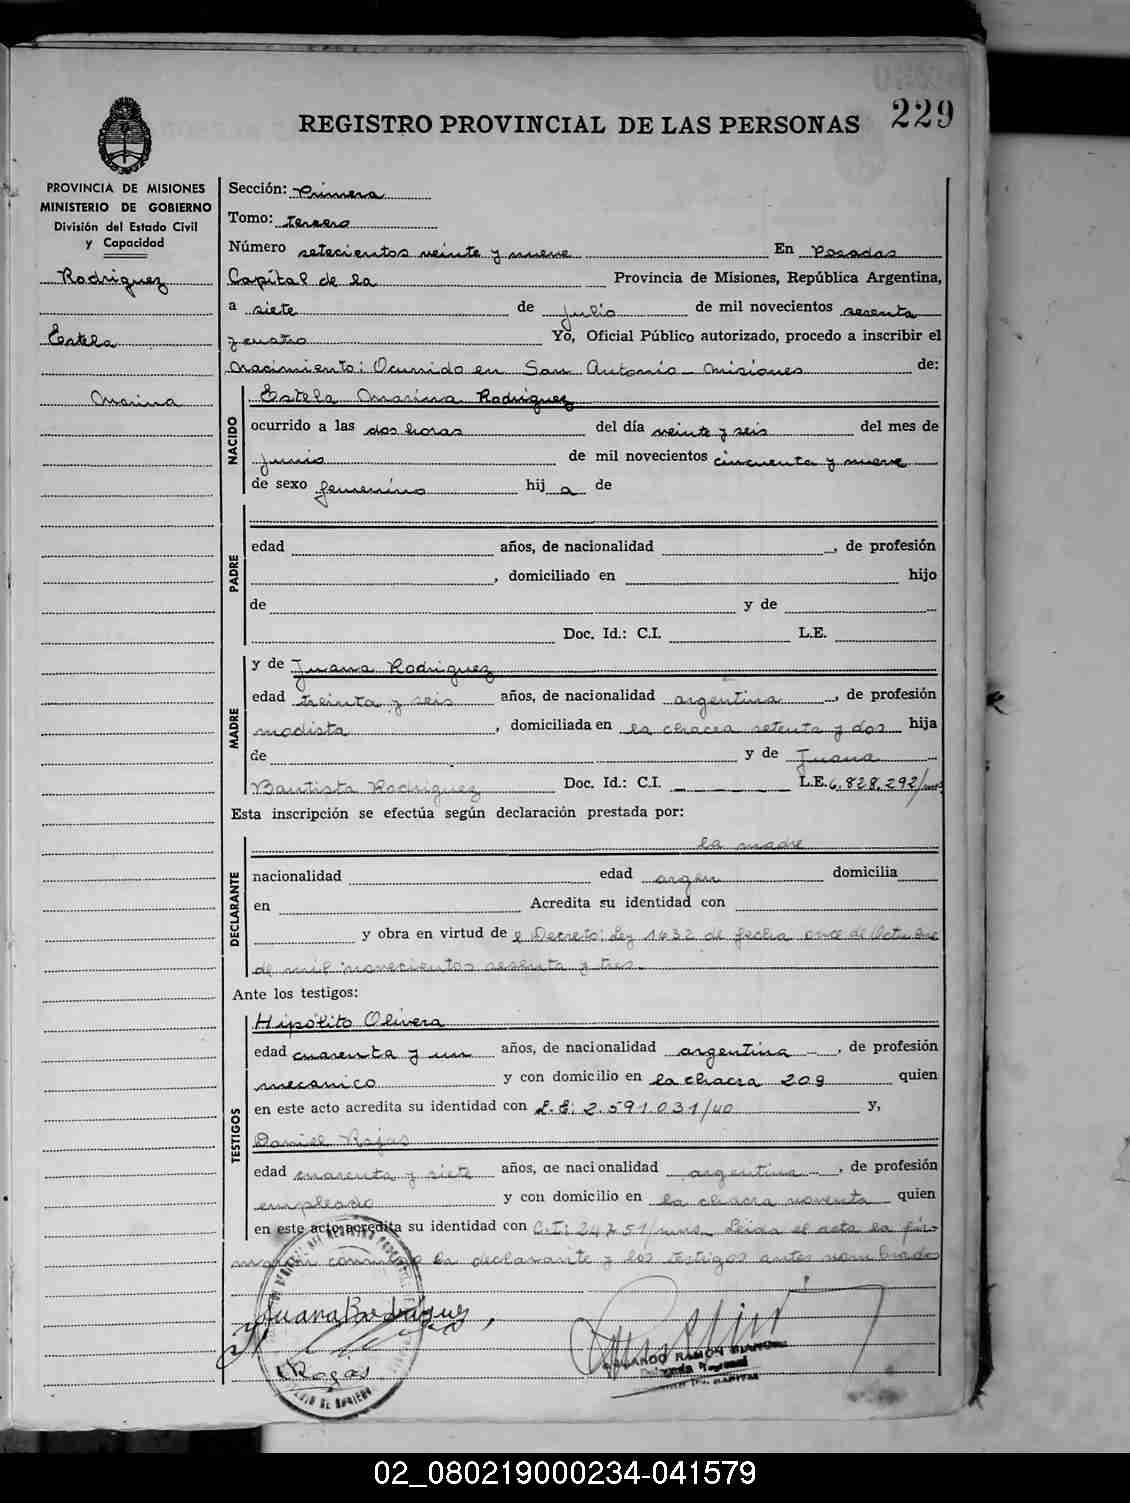 229
REGISTRO PROVINCIAL DE LAS PERSONAS
PROVINCIA DE MISIONES
MINISTERIO DE GOBIERNO
División del Estado Civil
y Capacidad
Rodriguez
Estela
Marina
Sección: Primera
Tomo: tercero
Número setecientos veinte y nueve En Posadas
Capital de la Provincia de Misiones, República Argentina,
a siete de julio de mil novecientos sesenta
y cuatro Yo, Oficial Público autorizado, procedo a inscribir el
nacimiento: Ocurrido en San Antonio - Misiones de:
NACIDO
Estela Marina Rodriguez
ocurrido a las dos horas del día veinte y seis del mes de
junio de mil novecientos cincuenta y nueve
de sexo femenino hij a de
PADRE
edad años, de nacionalidad , de profesión
, domiciliado en hijo
de y de
Doc. Id.: C.I. L.E.
MADRE
y de Juana Rodriguez
edad treinta y seis años, de nacionalidad argentina , de profesión
modista , domiciliada en la chacra setenta y dos hija
de y de Juana
Bautista Rodriguez Doc. Id.: C.I. L.E. 6.828.292/
Esta inscripción se efectúa según declaración prestada por:
DECLARANTE
la madre
nacionalidad edad argen domicilia
en Acredita su identidad con
y obra en virtud de l Decreto: Ley 1432 de fecha once de Octubre
de mil novecientos sesenta y tres.
Ante los testigos:
TESTIGOS
Hipólito Olivera
edad cuarenta y un años, de nacionalidad argentina , de profesión
mecanico y con domicilio en la chacra 209 quien
en este acto acredita su identidad con L.E: 2.591.031/40 y,
Daniel Rojas
edad cuarenta y siete años, de nacionalidad argentina , de profesión
empleado y con domicilio en la chacra noventa quien
en este acto acredita su identidad con C.I: 24751/mns. Leida el acta la fir-
maron conmigo la declarante y los testigos antes nombrados
Juana Rodriguez
Rojas
RAMON
02_080219000234-041579